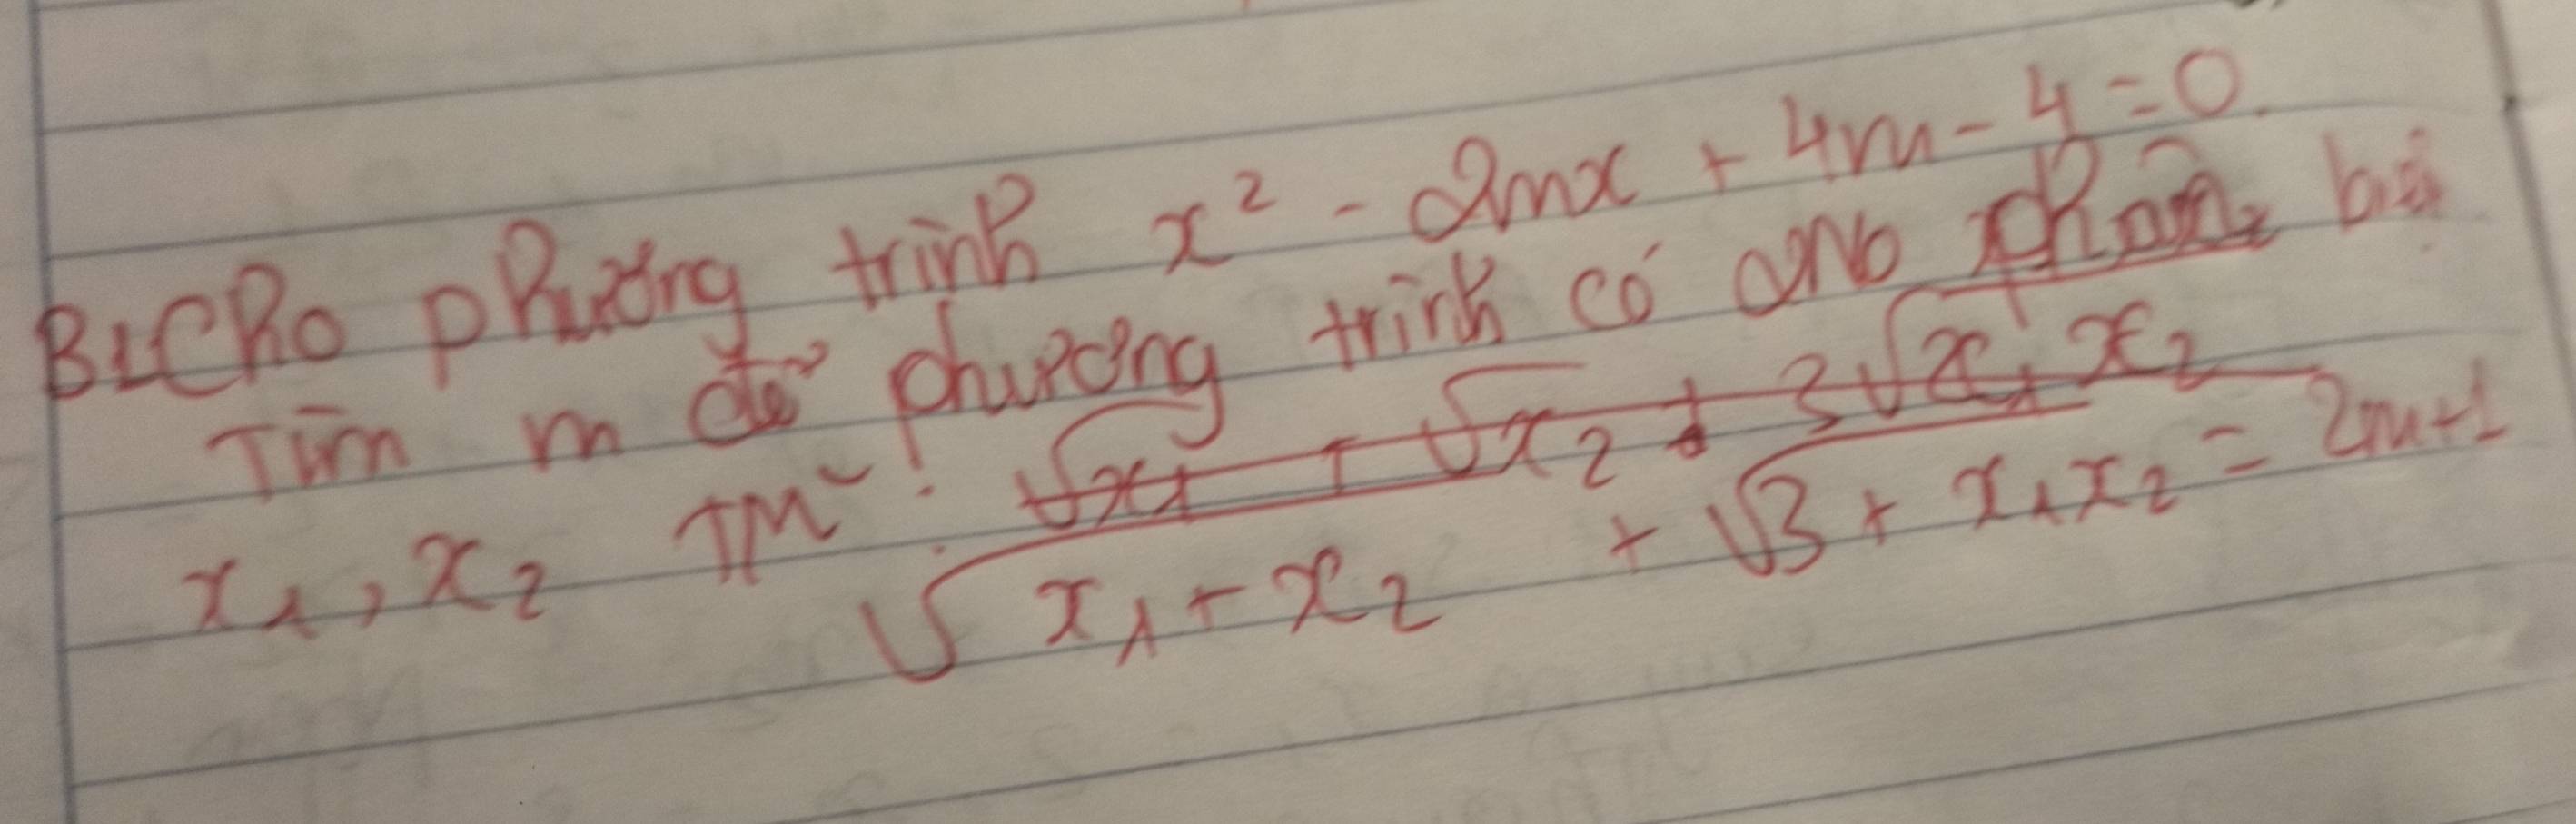 B1 Cho phương trình x² - 2mx + 4m - 4 = 0.
Tìm m để phương trình có 2No phân
x₁, x₂ TM : √x₁ + √x₂ + 3√x₁x₂
√x₁ + x₂ + √3 + x₁x₂ = 2m+1